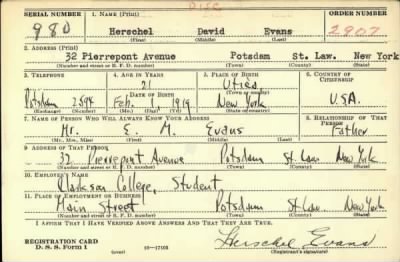 DISC
SERIAL NUMBER 1. NAME (Print) ORDER NUMBER
980 Herschel David Evans 2907
(First) (Middle) (Last)
2. ADDRESS (Print)
32 Pierrepont Avenue Potsdam St. Law. New York
(Number and street or R. F. D. number) (Town) (County) (State)
3. TELEPHONE 4. AGE IN YEARS 5. PLACE OF BIRTH 6. COUNTRY OF CITIZENSHIP
21 Utica
DATE OF BIRTH (Town or county)
Potsdam 2594 Feb. 1919 New York U.S.A.
(Exchange) (Number) (Mo.) (Day) (Yr.) (State or country)
7. NAME OF PERSON WHO WILL ALWAYS KNOW YOUR ADDRESS 8. RELATIONSHIP OF THAT PERSON
Mr. E. M. Evans Father
(Mr., Mrs., Miss) (First) (Middle) (Last)
9. ADDRESS OF THAT PERSON
32 Pierrepont Avenue Potsdam St. Law. New York
(Number and street or R. F. D. number) (Town) (County) (State)
10. EMPLOYER'S NAME
Clarkson College, Student
11. PLACE OF EMPLOYMENT OR BUSINESS
Main Street Potsdam St. Law. New York
(Number and street or R. F. D. number) (Town) (County) (State)
I AFFIRM THAT I HAVE VERIFIED ABOVE ANSWERS AND THAT THEY ARE TRUE.
REGISTRATION CARD
D. S. S. Form 1 (over) 16—17105 Herschel Evans
(Registrant's signature)